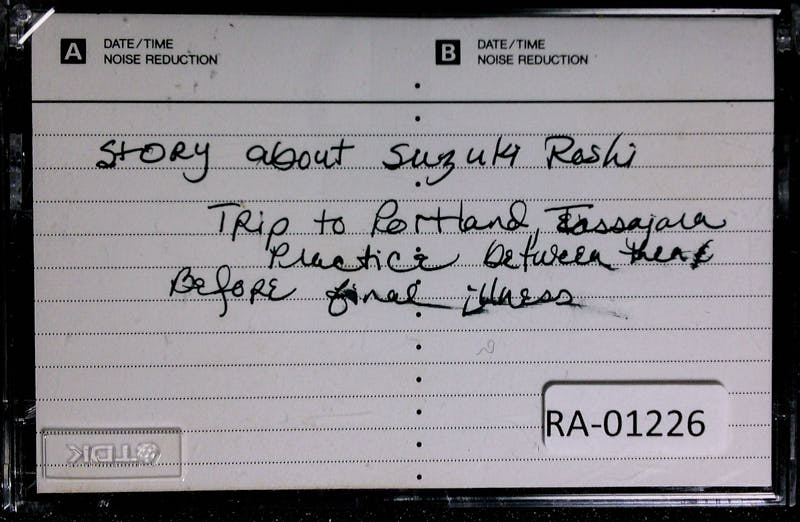 A DATE/TIME
NOISE REDUCTION
B DATE/TIME
NOISE REDUCTION
Story about Suzuki Roshi
Trip to Portland, Tassajara
Practice between
Before final illness
RA-01226
TDK